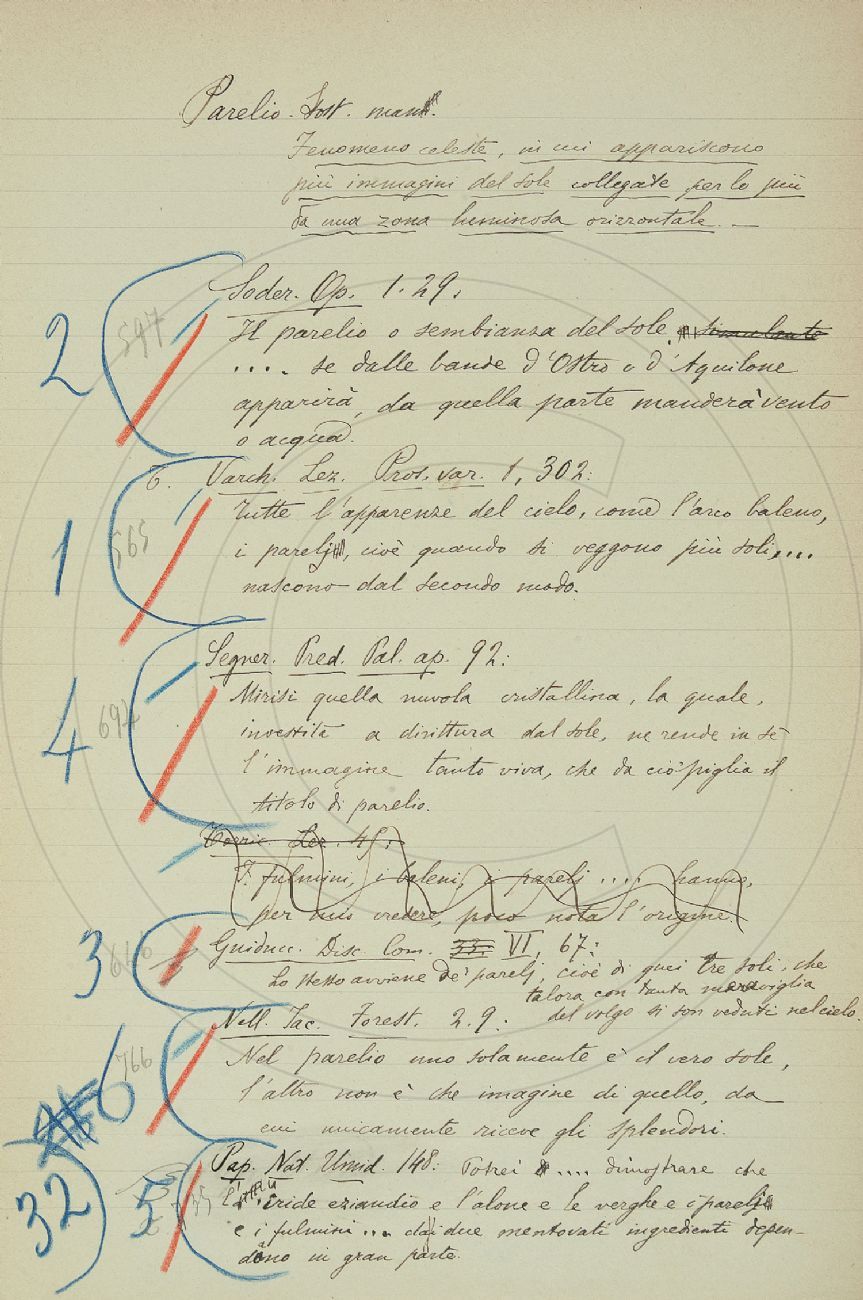 Parelio. Sost. mas.
Fenomeno celeste, in cui appariscono
più immagini del sole collegate per lo più
da una zona luminosa orizzontale. —
2 597 Soder. Op. 1. 29:
Il parelio o sembianza del sole, simulante
.... se dalle bande d'Ostro o d'Aquilone
apparirà, da quella parte manderà vento
o acqua.
1 565 T. Varch. Lez. Pros. var. 1, 302:
Tutte l'apparenze del cielo, come l'arco baleno,
i parelj, cioè quando si veggono più soli,...
nascono dal secondo modo.
4 694 Segner. Pred. Pal. ap. 92:
Mirisi quella nuvola cristallina, la quale,
investita a dirittura dal sole, ne rende in sè
l'immagine tanto viva, che da ciò piglia il
titolo di parelio.
Lez. 45:
I fulmini, i baleni, i parelj .... hanno,
per mio vedere, poco nota l'origine.
3 640 Guiducc. Disc. Com. 33. VI, 67:
Lo stesso avviene de' parelj, cioè di quei tre soli, che
talora con tanta maraviglia
del volgo si son veduti nel cielo.
6 766 Nell. Iac. Forest. 2. 9:
Nel parelio uno solamente è il vero sole,
l'altro non è che imagine di quello, da
cui unicamente riceve gli splendori.
32 5 735 Pap. Nat. Umid. 148: Potrei .... dimostrare che
l'iride eziandio e l'alone e le verghe e i parelj
e i fulmini ... dai due mentovati ingredienti depen-
dano in gran parte.